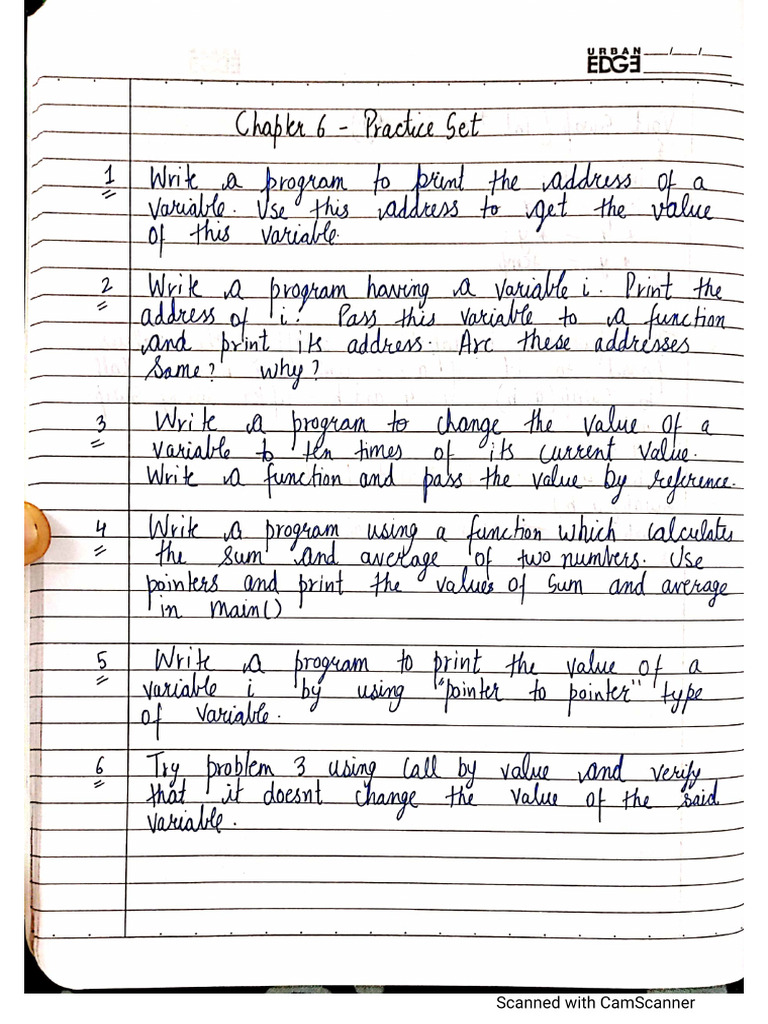 URBAN
EDGE
Chapter 6 - Practice Set
1 Write a program to print the address of a
variable. Use this address to get the value
of this variable.
2 Write a program having a variable i. Print the
address of i. Pass this variable to a function
and print its address. Are these addresses
same? why?
3 Write a program to change the value of a
variable to ten times of its current value.
Write a function and pass the value by reference.
4 Write a program using a function which calculates
the sum and average of two numbers. Use
pointers and print the values of sum and average
in main()
5 Write a program to print the value of a
variable i by using "pointer to pointer" type
of variable.
6 Try problem 3 using call by value and verify
that it doesnt change the value of the said
variable.
Scanned with CamScanner